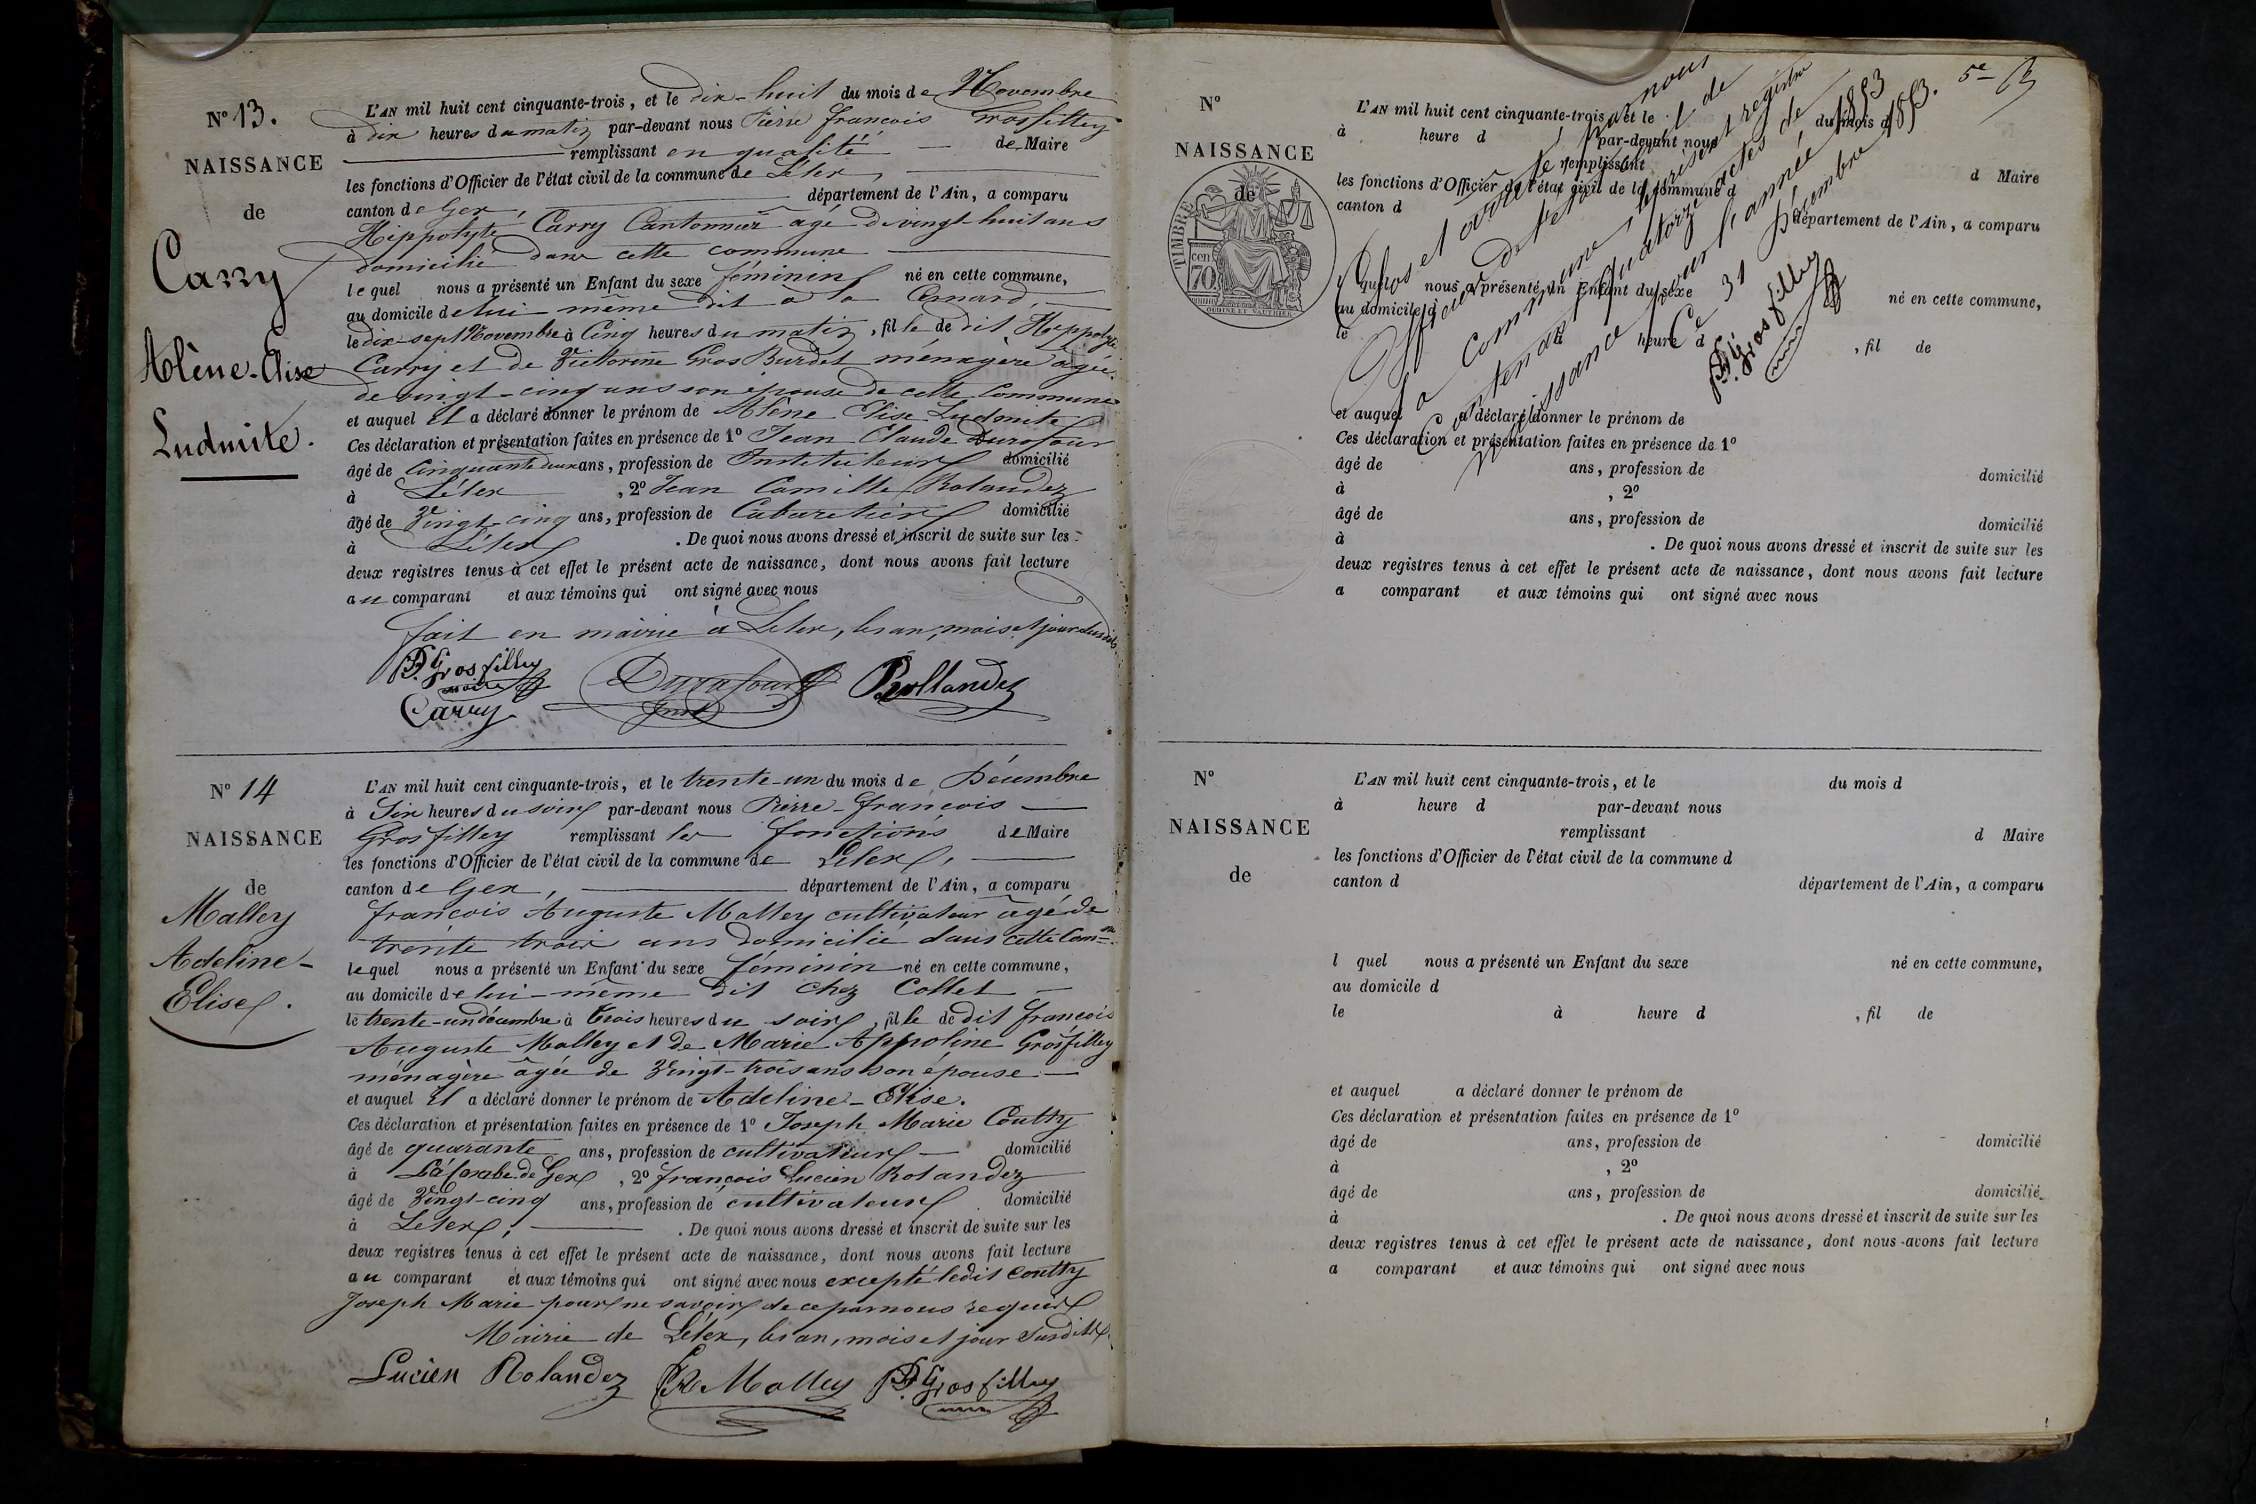 N° 13.
NAISSANCE
de
Carry
Alène-Elise
Ludmite.
L'AN mil huit cent cinquante-trois, et le dix-huit du mois de Novembre
à dix heures du matin par-devant nous Pierre François Grosfilley
remplissant en qualité de Maire
les fonctions d'Officier de l'état civil de la commune de Lélex,
canton de Gex, département de l'Ain, a comparu
Hippolyte Carry Cantonnier âgé de vingt-huit ans
domicilié dans cette commune
lequel nous a présenté un Enfant du sexe féminin né en cette commune,
au domicile de lui-même dit à la
le dix-sept Novembre à Cinq heures du matin, fille de dit Hippolyte
Carry et de Victorine Gros Burdet ménagère âgée
de vingt-cinq ans son épouse de cette Commune
et auquel Il a déclaré donner le prénom de Alène Elise Ludmite
Ces déclaration et présentation faites en présence de 1° Jean Claude Durafour
âgé de Cinquante deux ans, profession de Instituteur domicilié
à Lélex, 2° Jean Camille Rolandez
âgé de Vingt-cinq ans, profession de Cabaretier domicilié
à Lélex. De quoi nous avons dressé et inscrit de suite sur les
deux registres tenus à cet effet le présent acte de naissance, dont nous avons fait lecture
au comparant et aux témoins qui ont signé avec nous
fait en mairie à Lelex, les an, mois et jour susdits
P.F. Grosfilley
maire
Durafour
Rollandez
Carry
N° 14
NAISSANCE
de
Malley
Adeline-
Elise.
L'AN mil huit cent cinquante-trois, et le trente-un du mois de Décembre
à Six heures du soir par-devant nous Pierre-François
Grosfilley remplissant les fonctions de Maire
les fonctions d'Officier de l'état civil de la commune de Lelex,
canton de Gex, département de l'Ain, a comparu
François Auguste Malley cultivateur âgé de
trente trois ans domicilié dans cette Com=ne
lequel nous a présenté un Enfant du sexe féminin né en cette commune,
au domicile de lui-même dit chez Collet
le trente-un décembre à trois heures du soir, fille de dit François
Auguste Malley et de Marie Appoline Grosfilley
ménagère âgée de Vingt-trois ans son épouse
et auquel Il a déclaré donner le prénom de Adeline-Elise.
Ces déclaration et présentation faites en présence de 1° Joseph Marie Coutty
âgé de quarante ans, profession de cultivateur domicilié
à Lá Combe de Gex, 2° François Lucien Rolandez
âgé de Vingt-cinq ans, profession de cultivateur domicilié
à Lelex, . De quoi nous avons dressé et inscrit de suite sur les
deux registres tenus à cet effet le présent acte de naissance, dont nous avons fait lecture
au comparant et aux témoins qui ont signé avec nous excepté ledit Coutty
Joseph Marie pour ne savoir de ce par nous requis
Mairie de Lélex, les an, mois et jour Susdits.
Lucien Rolandez
Malley
P.F. Grosfilley
5e
N°
NAISSANCE
de
TIMBRE
70 cen
OUDINE ET VAUTHIER
L'AN mil huit cent cinquante-trois, et le du mois d
à heure d par-devant nous
remplissant d Maire
les fonctions d'Officier de l'état civil de la commune d
canton d département de l'Ain, a comparu
l quel nous a présenté un Enfant du sexe né en cette commune,
au domicile d
le à heure d , fil de
et auquel a déclaré donner le prénom de
Ces déclaration et présentation faites en présence de 1°
âgé de ans, profession de domicilié
à , 2°
âgé de ans, profession de domicilié
à . De quoi nous avons dressé et inscrit de suite sur les
deux registres tenus à cet effet le présent acte de naissance, dont nous avons fait lecture
a comparant et aux témoins qui ont signé avec nous
Clos et arrêté par nous
Officier de l'état civil de
la commune, le présent registre
Contenant quatorze actes de
naissance pour l'année 1853
Ce 31 Décembre 1853.
P.F. Grosfilley
N°
NAISSANCE
de
L'AN mil huit cent cinquante-trois, et le du mois d
à heure d par-devant nous
remplissant d Maire
les fonctions d'Officier de l'état civil de la commune d
canton d département de l'Ain, a comparu
l quel nous a présenté un Enfant du sexe né en cette commune,
au domicile d
le à heure d , fil de
et auquel a déclaré donner le prénom de
Ces déclaration et présentation faites en présence de 1°
âgé de ans, profession de domicilié
à , 2°
âgé de ans, profession de domicilié
à . De quoi nous avons dressé et inscrit de suite sur les
deux registres tenus à cet effet le présent acte de naissance, dont nous avons fait lecture
a comparant et aux témoins qui ont signé avec nous